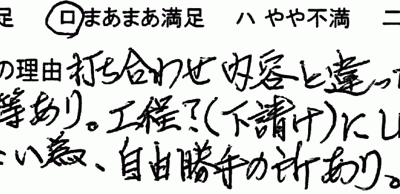 足 ロ まあまあ満足 ハ やや不満 ニ
の理由 打ち合わせ内容と違っ
等あり。工程?(下請け)にし
い為、自由勝手の所あり。